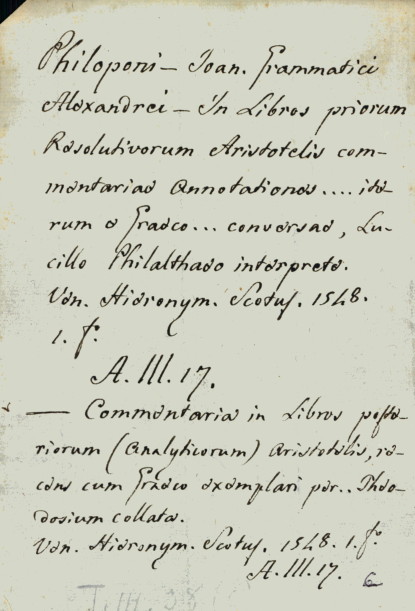 Philoponi — Joan. Grammatici
Alexandrei — In Libros priorum
Resolutivorum Aristotelis com-
mentariae annotationes.... ite-
rum e Graeco... conversae, Lu-
cillo Philalthaeo interprete.
Ven. Hieronym. Scotus. 1548.
1. f.
A. III. 17.
— Commentaria in Libros poste-
riorum (Analyticorum) Aristotelis, re-
cens cum Graeco exemplari per.. Theo-
dosium collata.
Ven. Hieronym. Scotus. 1548. 1. f.
A. III. 17.